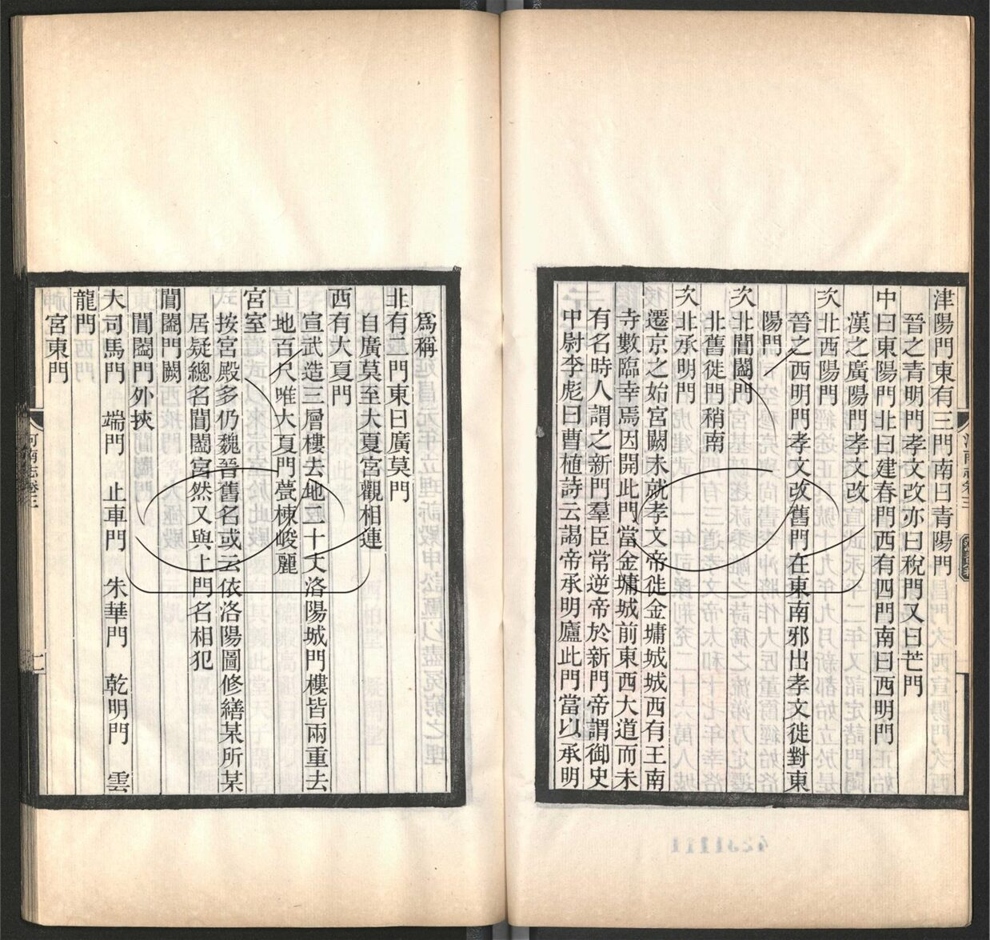 津陽門東有三門南曰青陽門
晉之青明門孝文改亦曰稅門又曰芒門
中曰東陽門北曰建春門西有四門南曰西明門
漢之廣陽門孝文改
次北西陽門
晉之西明門孝文改舊門在東南邪出孝文徙對東
陽門
次北閶闔門
北舊徙門稍南
次北承明門
遷京之始宮闕未就孝文帝徙金墉城城西有王南
寺數臨幸焉因開此門當金墉城前東西大道而未
有名時人謂之新門羣臣常逆帝於新門帝謂御史
中尉李彪曰曹植詩云謁帝承明廬此門當以承明
爲稱
北有二門東曰廣莫門
自廣莫至大夏宮觀相連
西有大夏門
宣武造三層樓去地二十丈洛陽城門樓皆兩重去
地百尺唯大夏門甍棟峻麗
宮室
按宮殿多仍魏晉舊名或云依洛陽圖修繕某所某
居疑總名閶闔宮然又與上門名相犯
閶闔門闕
閶闔門外挾
大司馬門 端門 止車門 朱華門 乾明門 雲
龍門
宮東門
河南志卷三